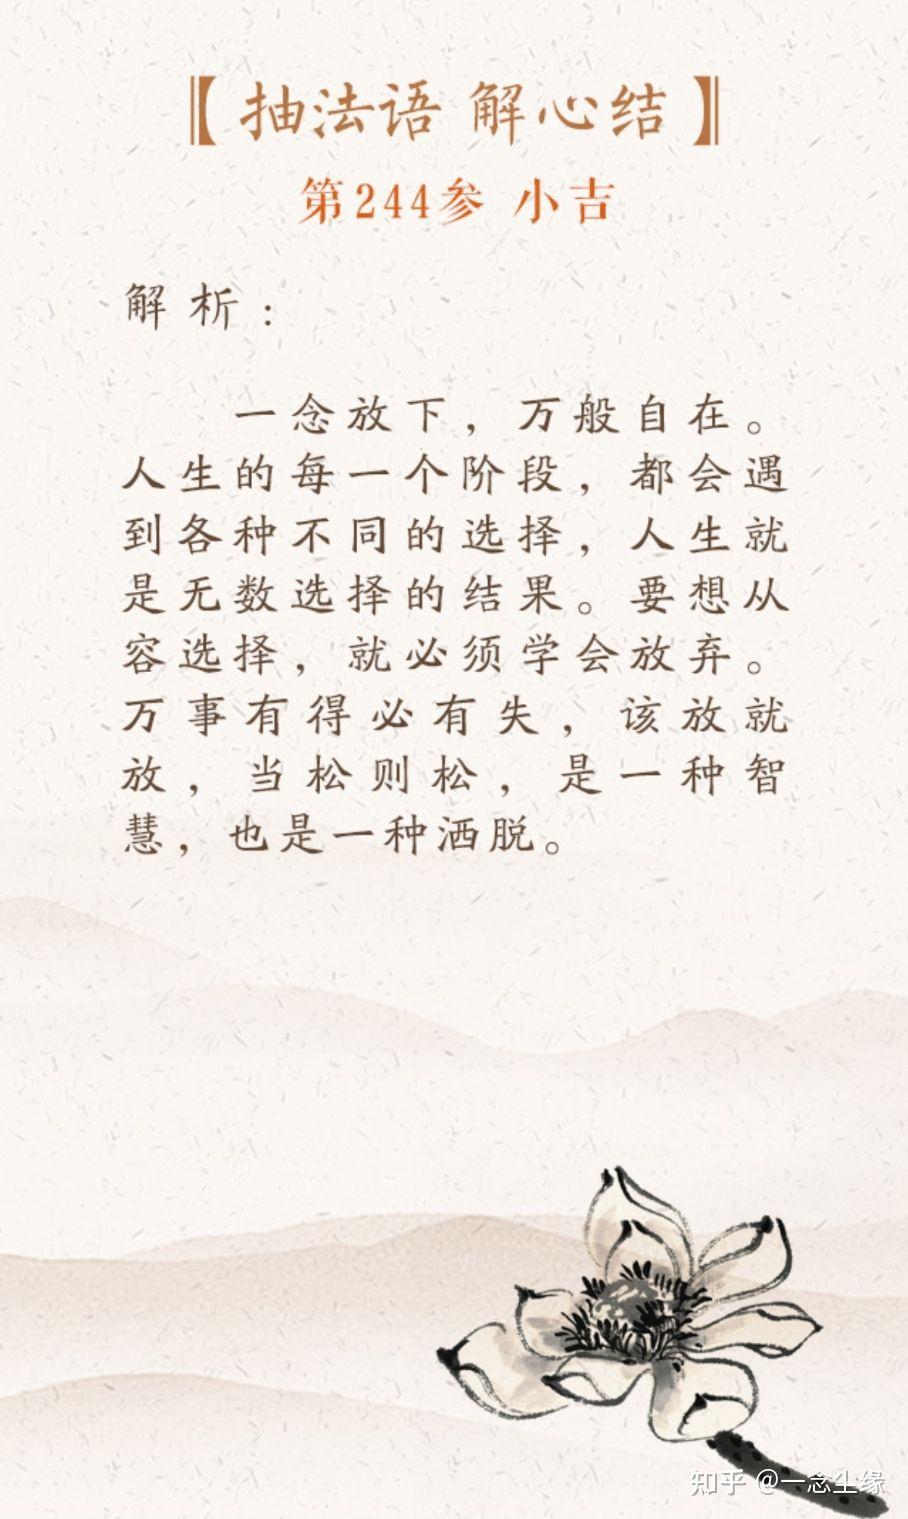 【抽法语 解心结】
第244参 小吉
解析：
一念放下，万般自在。
人生的每一个阶段，都会遇
到各种不同的选择，人生就
是无数选择的结果。要想从
容选择，就必须学会放弃。
万事有得必有失，该放就
放，当松则松，是一种智
慧，也是一种洒脱。
知乎 @一念尘缘